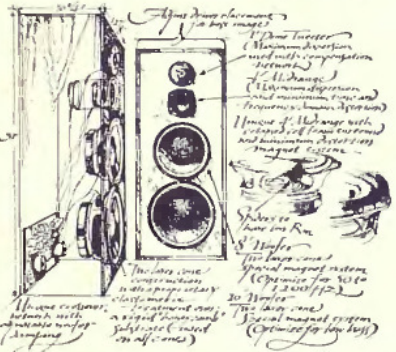 Adjust driver placement
for best image
1" Dome Tweeter
(Maximum dispersion
used with compensation
network)
4" Midrange
(Maximum dispersion
and minimum time and
frequency domain distortion)
Unique 4" Midrange with
foam surround
and minimum distortion
magnet system
Spider to
have low Rm
8" Woofer
Two layer cone
Special magnet system
(Optimize for 40 to
Hz)
10" Woofer
Two layer cone
Special magnet system
(Optimize for low bass)
Two layer cone
construction
with proprietary
elastomeric
treatment over
a rigid
substrate (used
on all cones)
Unique crossover
network with
adjustable woofer
damping